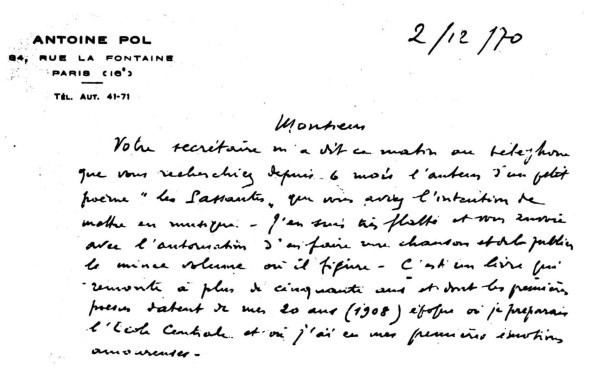 ANTOINE POL
64, RUE LA FONTAINE
PARIS (16e)
TÉL. AUT. 41-71
2/12/70
Monsieur
Votre secrétaire m'a dit ce matin au téléphone
que vous recherchiez depuis 6 mois l'auteur d'un petit
poème "Les Passantes", que vous aviez l'intention de
mettre en musique - J'en suis très flatté et vous envoie
avec l'autorisation d'en faire une chanson et de la publier
le mince volume où il figure - C'est un livre qui
remonte à plus de cinquante ans et dont les premières
pièces datent de mes 20 ans (1908) époque où je préparais
l'Ecole Centrale et où j'ai eu mes premières émotions
amoureuses -